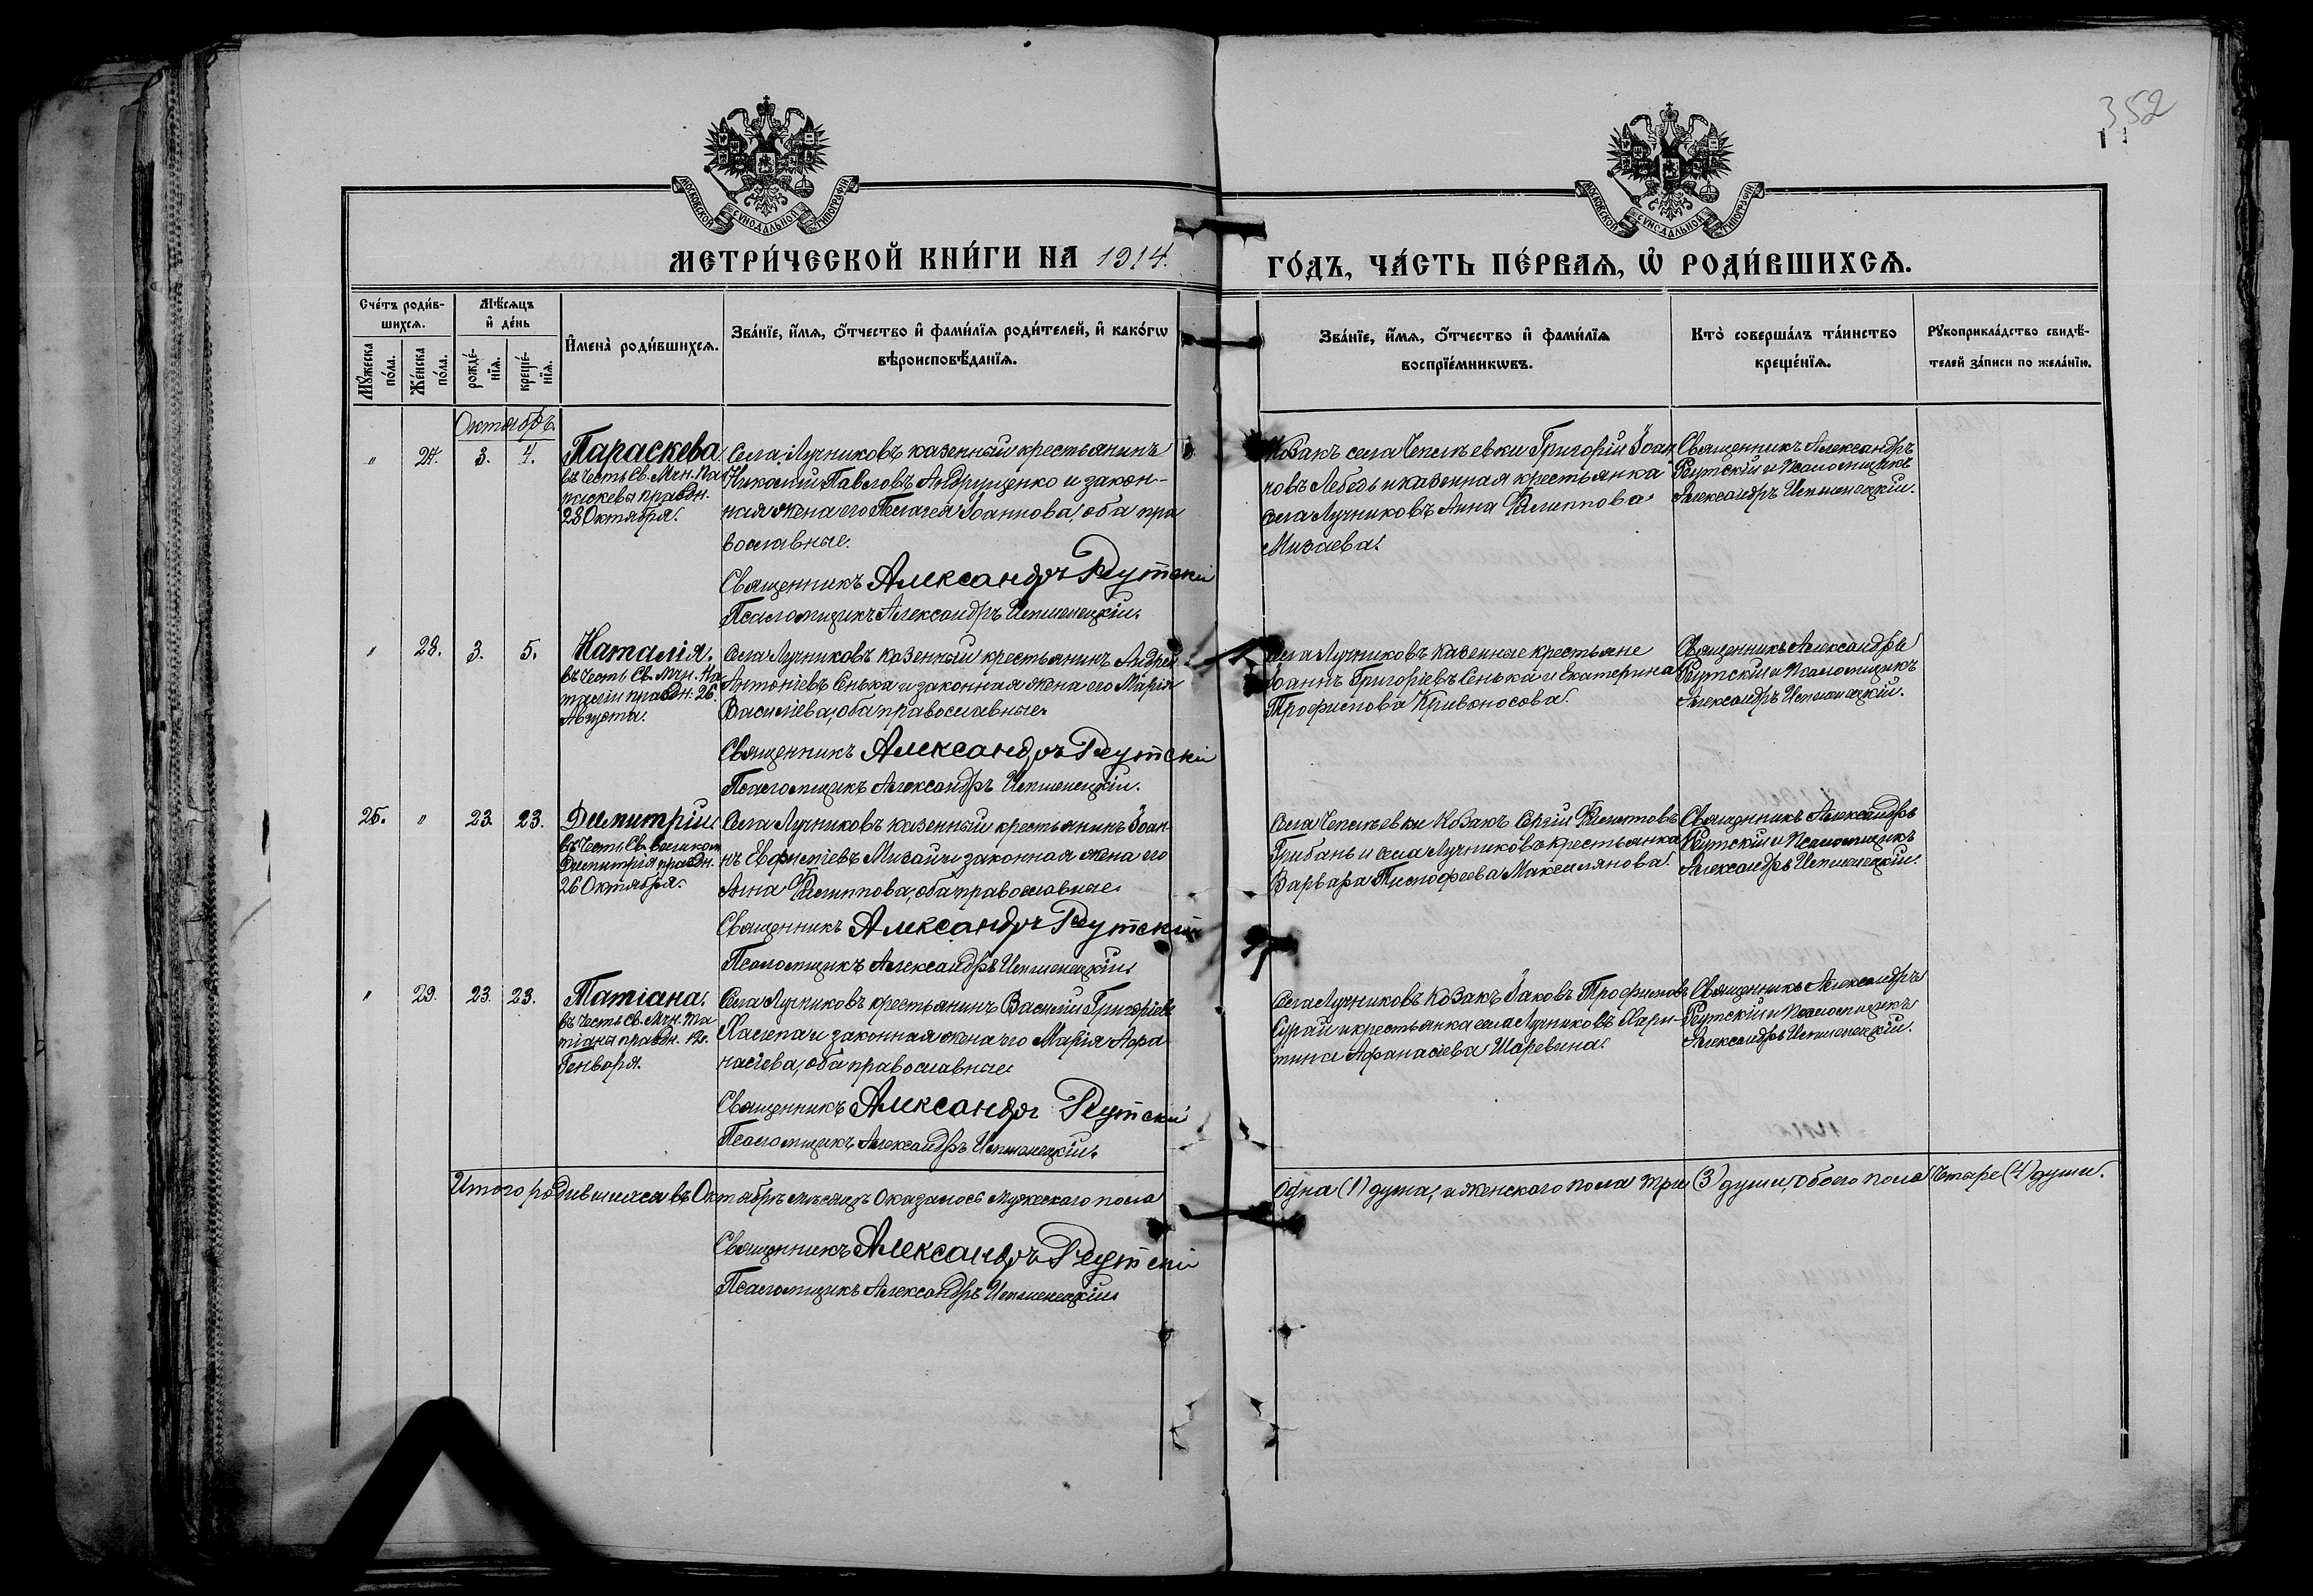 352
МОСКОВСКОЙ СѴНОДАЛЬНОЙ ТИПОГРАФІИ
МОСКОВСКОЙ СѴНОДАЛЬНОЙ ТИПОГРАФІИ
МЕТРИ́ЧЕСКОЙ КНИ́ГИ НА 1914.
ГО́ДЪ, ЧА́СТЬ ПЕ́РВАѦ, Ѽ РОДИ́ВШИХСѦ.
Сче́тъ роди́в-
шихсѧ.
Мꙋ́жеска по́ла.
Же́нска по́ла.
Мѣ́сѧцъ
и҆ де́нь
рожде́-нїѧ.
креще́-нїѧ.
И҆мена̀ роди́вшихсѧ.
Зва́нїе, и҆́мѧ, ѻ҆́тчество и҆ фами́лїѧ роди́телей, и҆ како́гѡ
вѣроисповѣ́данїѧ.
Зва́нїе, и҆́мѧ, ѻ҆́тчество и҆ фами́лїѧ
воспрїе́мникѡвъ.
Кто̀ соверша́лъ та́инство
креще́нїѧ.
Рꙋкоприкла́дство свидѣ́-
телей за́писи по жела́нїю.
Октябрь.
" 27. 3. 4.
Параскева.
въ честь Св. Мчн. Па
раскевы праздн.
28 Октября.
Села Лучниковъ казенный крестьянинъ
Николай Павловъ Андрущенко и закон-
ная жена его Пелагея Іоаннова, оба пра
вославные.
Священникъ Александръ Реутскій
Псаломщикъ Александръ
Козакъ села Чепелевки Григорій Іоан
новъ Лебедь и казенная крестьянка
села Лучниковъ Анна Филиппова
Мизаева.
Священникъ Александръ
Реутскій и Псаломщикъ
Александръ
" 28. 3. 5.
Наталія.
въ честь Св. Мчн. На
таліи праздн. 26
Августа.
Села Лучниковъ казенный крестьянинъ Андрей
Антоніевъ Сенька и законная жена его Марія
Василіева, оба православные.
Священникъ Александръ Реутскій
Псаломщикъ Александръ
Села Лучниковъ казенные крестьяне
Іоаннъ Григоріевъ Сенька и Екатерина
Трофимова Кривоносова.
Священникъ Александръ
Реутскій и Псаломщикъ
Александръ
25. " 23. 23.
Димитрій.
въ честь Св. великом
Димитрія праздн.
26 Октября.
Села Лучниковъ казенный крестьянинъ Іоан-
нъ Евфиміевъ Мизай и законная жена его
Анна Филиппова, оба православные.
Священникъ Александръ Реутскій
Псаломщикъ Александръ
Села Чепелевки Козакъ Сергій Филипповъ
Грибань и села Лучниковъ крестьянка
Варвара Тимофеева Максимлянова.
Священникъ Александръ
Реутскій и Псаломщикъ
Александръ
" 29. 23. 23.
Татіана.
въ честь Св. Мчн. Та
тіаны праздн. 12.
Генваря.
Села Лучниковъ крестьянинъ Василій Григоріевъ
Халепа и законная жена его Марія Афа
насіева, оба православные.
Священникъ Александръ Реутскій
Псаломщикъ Александръ
Села Лучниковъ Козакъ Іаковъ Трофимовъ
Сурай и крестьянка села Лучниковъ Хари-
тина Афанасіева Шаревина.
Священникъ Александръ
Реутскій и Псаломщикъ
Александръ
Итого родившихся въ Октябрѣ мѣсяцѣ оказалось мужескаго пола одна (1) душа, а женскаго пола три (3) души, обоего пола четыре (4) души.
Священникъ Александръ Реутскій
Псаломщикъ Александръ